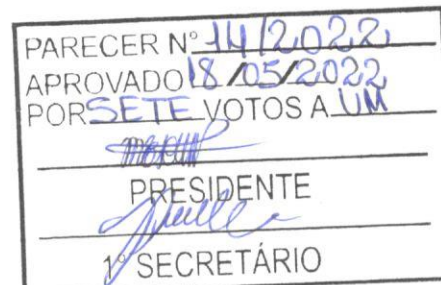 PARECER Nº 14/2022
APROVADO 18/05/2022
POR SETE VOTOS A UM
PRESIDENTE
1º SECRETÁRIO